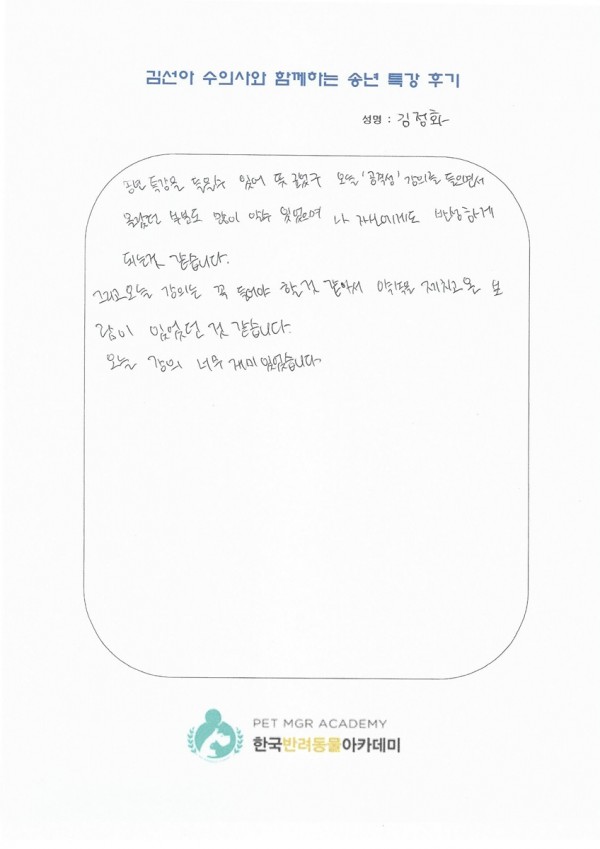 김선아 수의사와 함께하는 송년 특강 후기
성명 : 김정화
송년 특강을 들을수 있어 뜻 깊었구 오늘 '공격성' 강의를 들으면서
몰랐던 부분도 많이 알수 있었으며 나 자신에게도 반성하게
되는것 같습니다.
그리고 오늘 강의는 꼭 들어야 할것 같아서 제치고 온 보
람이 있었던 것 같습니다.
오늘 강의 너무 재미 있었습니다
PET MGR ACADEMY
한국반려동물아카데미